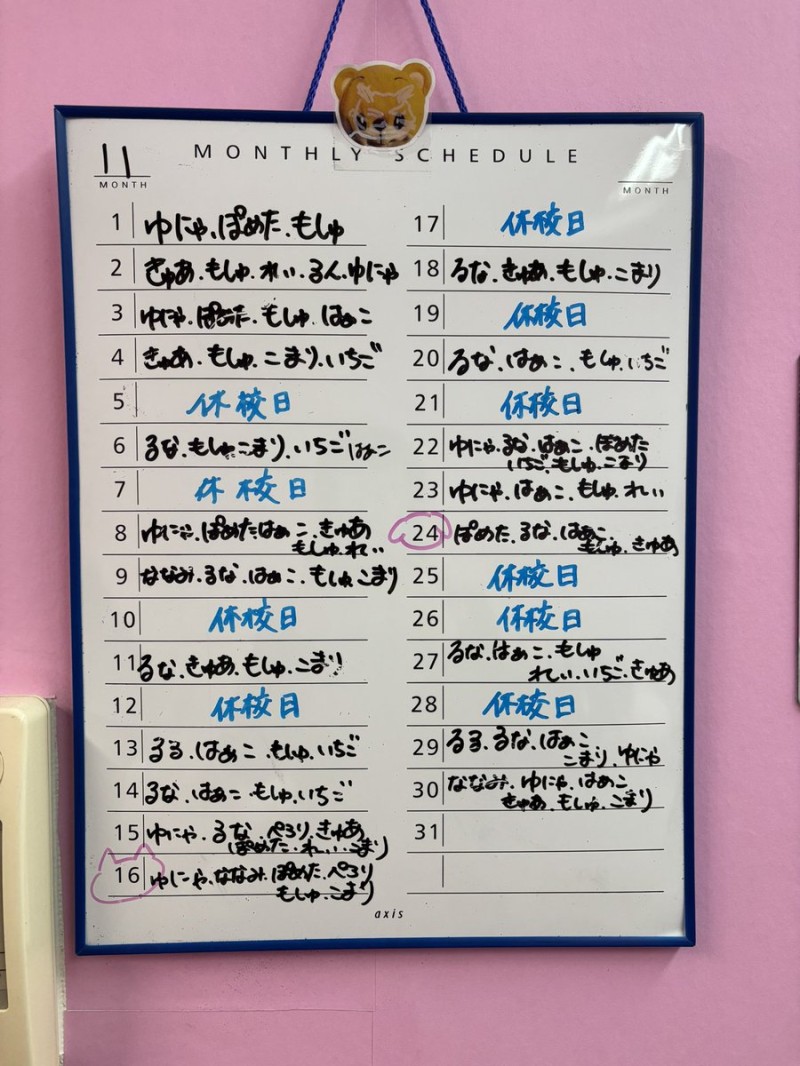 MONTHLY SCHEDULE
11
MONTH
MONTH
1 ゆにゃ.ぽめた.もしゅ
2 きゅあ.もしゅ.れい.るん.ゆにゃ
3 ゆにゃ.ぽめた.もしゅ.はねこ
4 きゅあ.もしゅ.こまり.いちご
5 休校日
6 るな.もしゅ.こまり.いちご はねこ
7 休校日
8 ゆにゃ.ぽめた はねこ.きゅあ
もしゅ.れい
9 ななみ.るな.はねこ.もしゅ.こまり
10 休校日
11 るな.きゅあ.もしゅ.こまり
12 休校日
13 るる.はねこ.もしゅ.いちご
14 るな.はねこ もしゅ.いちご
15 ゆにゃ.るな.ぺろり.きゅあ
ぽめた.れい.こまり
16 ゆにゃ.ななみ.ぽめた.ぺろり
もしゅ.こまり
17 休校日
18 るな.きゅあ.もしゅ.こまり
19 休校日
20 るな.はねこ.もしゅ.いちご
21 休校日
22 ゆにゃ.るな.はねこ.ぽめた
いちご.もしゅ.こまり
23 ゆにゃ.はねこ.もしゅ.れい
24 ぽめた.るな.はねこ
もしゅ.きゅあ
25 休校日
26 休校日
27 るな.はねこ.もしゅ
れい.いちご.きゅあ
28 休校日
29 るる.るな.はねこ
こまり.ゆにゃ
30 ななみ.ゆにゃ.はねこ
きゅあ.もしゅ.こまり
31
axis